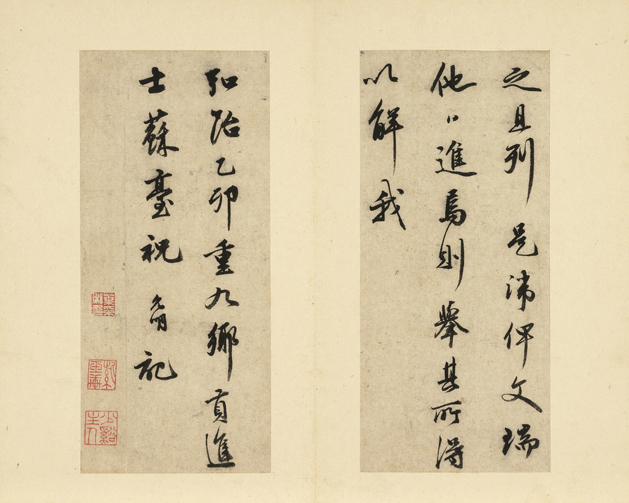 之且列是諱俾文瑞
他日進焉則舉其所得
以解我
弘治乙卯重九鄉貢進
士蘇臺祝允明記